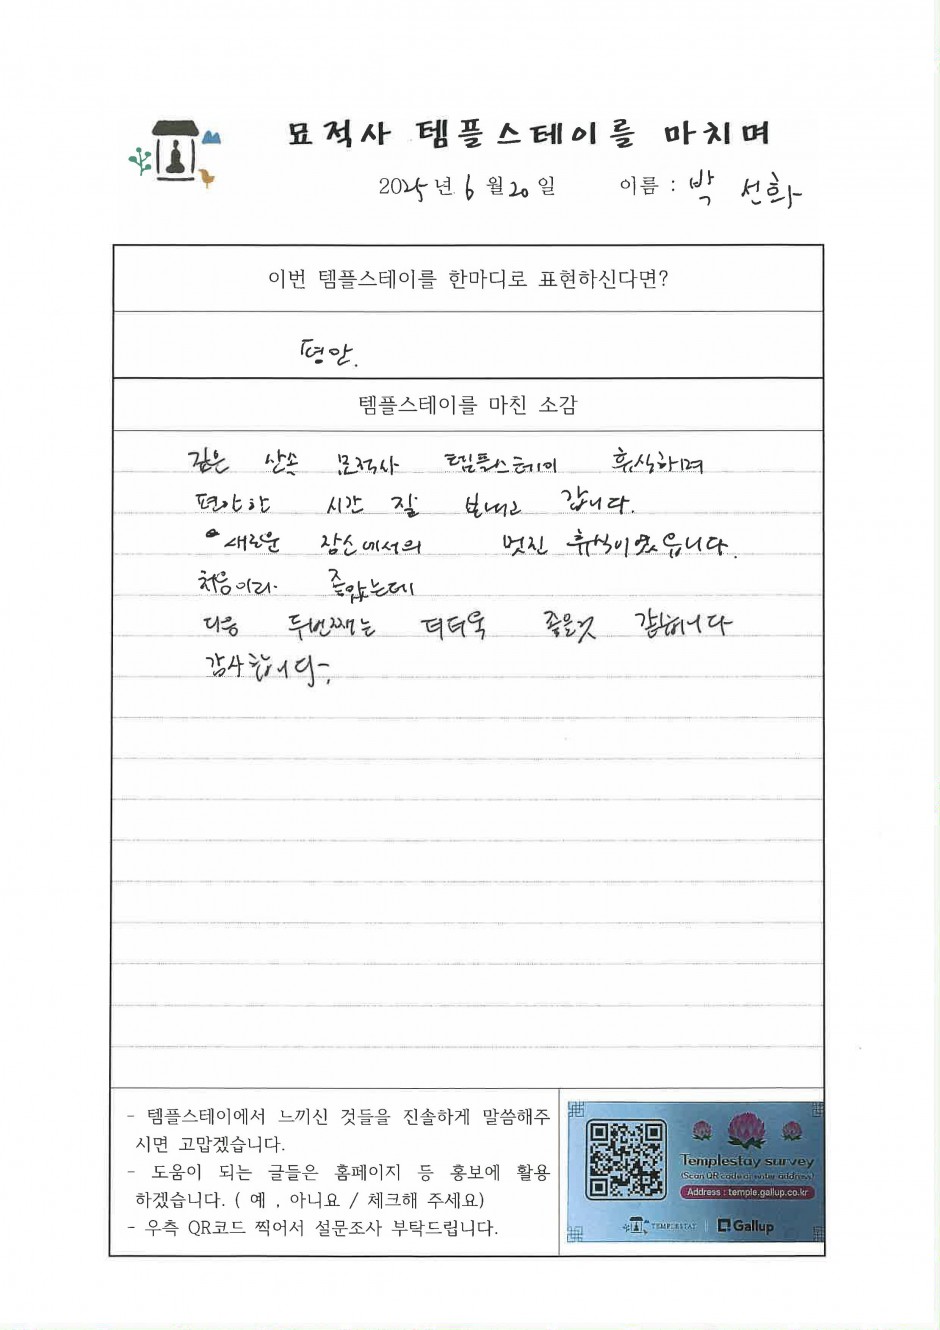 묘적사 템플스테이를 마치며
2025년 6월 20일 이름 : 박 선화
이번 템플스테이를 한마디로 표현하신다면?
평안.
템플스테이를 마친 소감
깊은 산속 묘적사 템플스테이 휴식하며
편안한 시간 잘 보내고 갑니다.
새로운 장소에서의 멋진 휴식이였읍니다.
처음이라 좋았는데
다음 두번째는 더더욱 좋을것 같습니다
감사합니다.
- 템플스테이에서 느끼신 것들을 진솔하게 말씀해주
시면 고맙겠습니다.
- 도움이 되는 글들은 홈페이지 등 홍보에 활용
하겠습니다. ( 예 , 아니요 / 체크해 주세요)
- 우측 QR코드 찍어서 설문조사 부탁드립니다.
Templestay survey
(Scan QR code or enter address)
Address : temple.gallup.co.kr
TEMPLESTAY Gallup